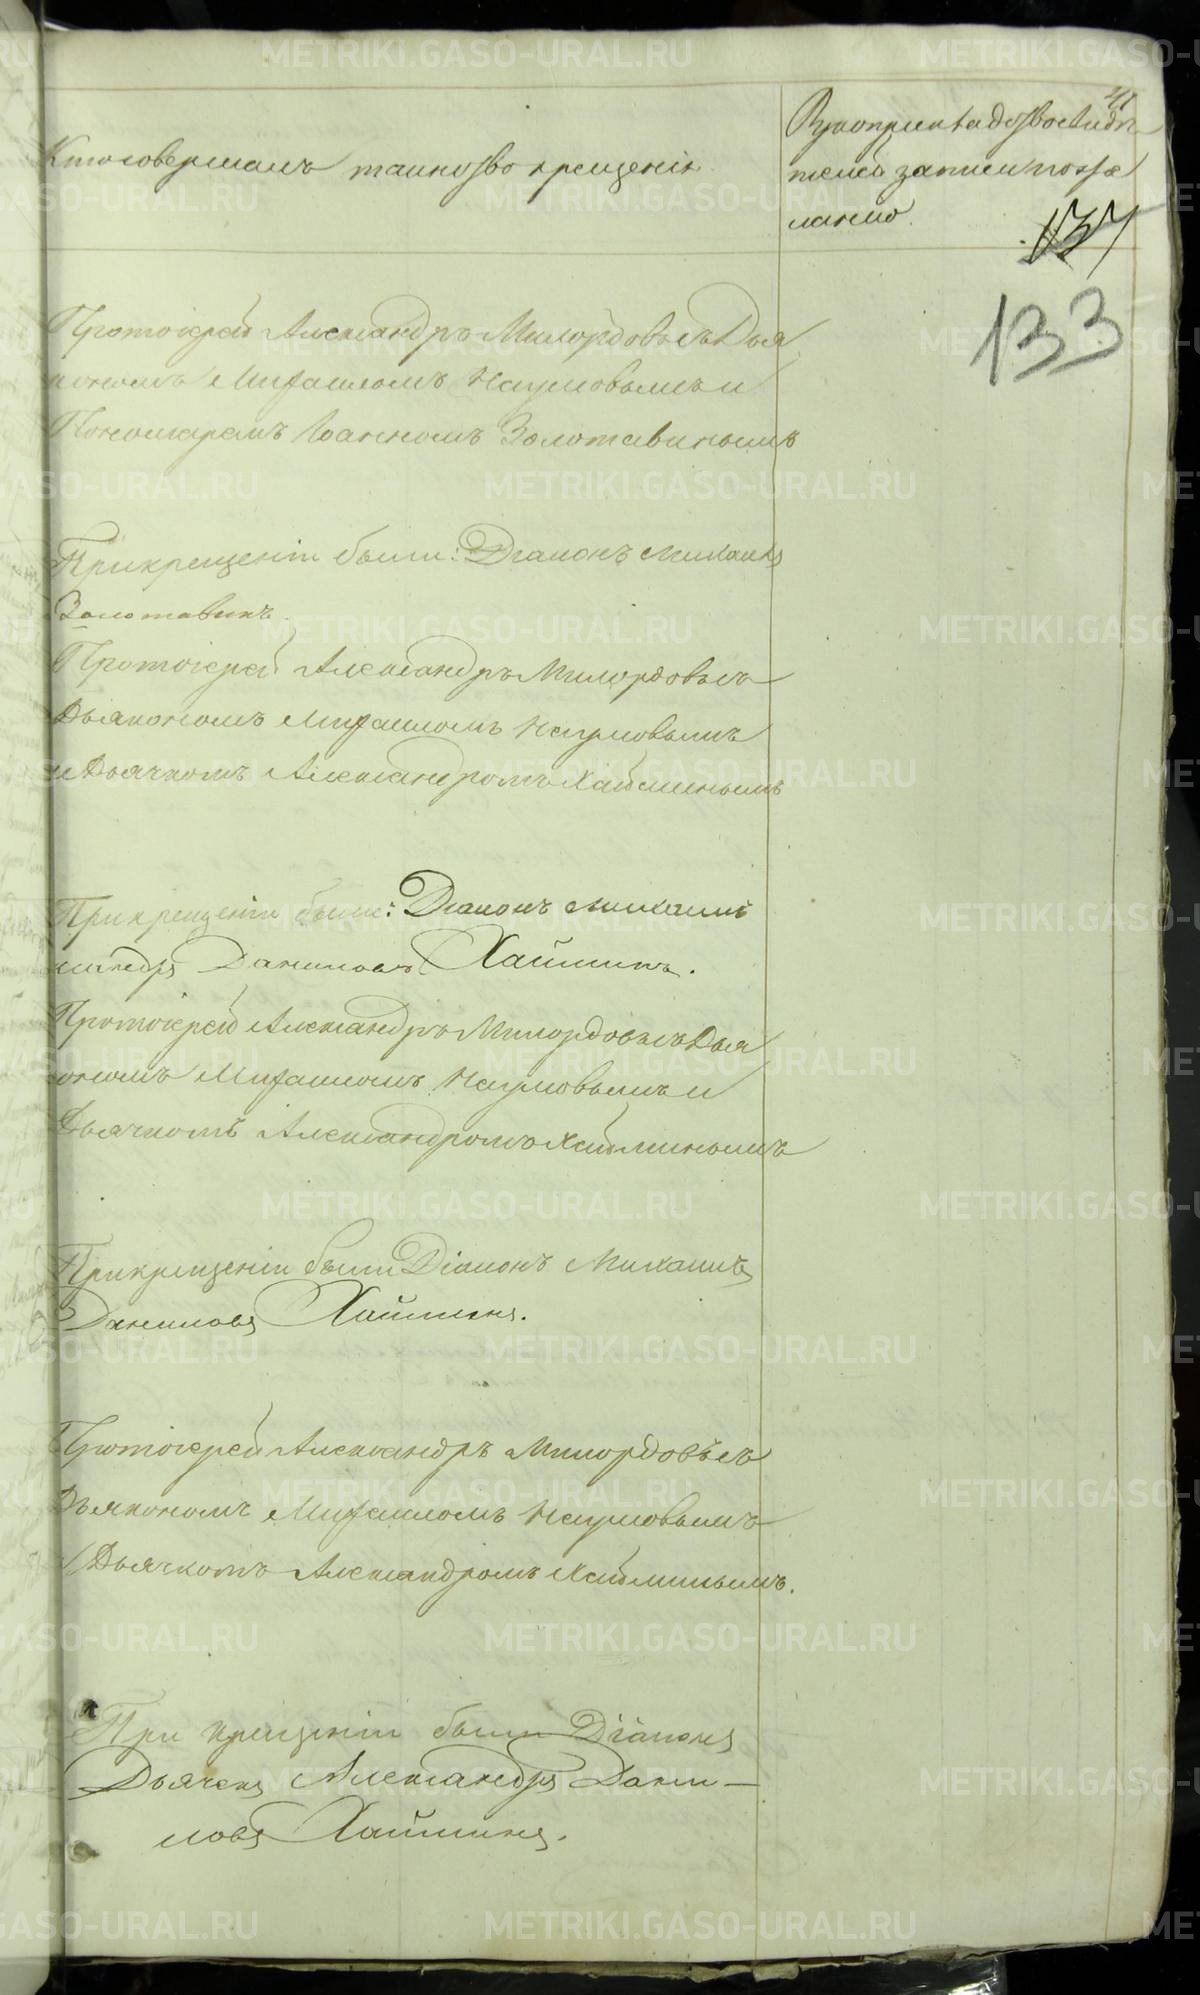 Кто совершалъ таинство крещенія.
Рукоприкладство свидѣ
телей записи по же
ланию.
41
137
133
Протоіерей Александръ Милордовъ съ Дья
кономъ Михаиломъ Наумовымъ и
Пономаремъ Іоанномъ Золотавинымъ
При крещеніи были: Діаконъ Михаилъ
Золотавинъ.
Протоіерей Александръ Милордовъ съ
Дьякономъ Михаиломъ Наумовымъ
и Дьячкомъ Александромъ Хайминымъ
При крещеніи были: Діаконъ Михаилъ
Даниловъ Хайминъ.
Протоіерей Александръ Милордовъ съ Дья
кономъ Михаиломъ Наумовымъ и
Дьячкомъ Александромъ Хайминымъ
При крещеніи были Діаконъ Михаилъ
Даниловъ Хайминъ.
Протоіерей Александръ Милордовъ съ
Дьякономъ Михаиломъ Наумовымъ
и Дьячкомъ Александромъ Хайминымъ.
При крещеніи были Діаконъ
Дьячекъ Александръ Дани-
ловъ Хайминъ.
METRIKI.GASO-URAL.RU